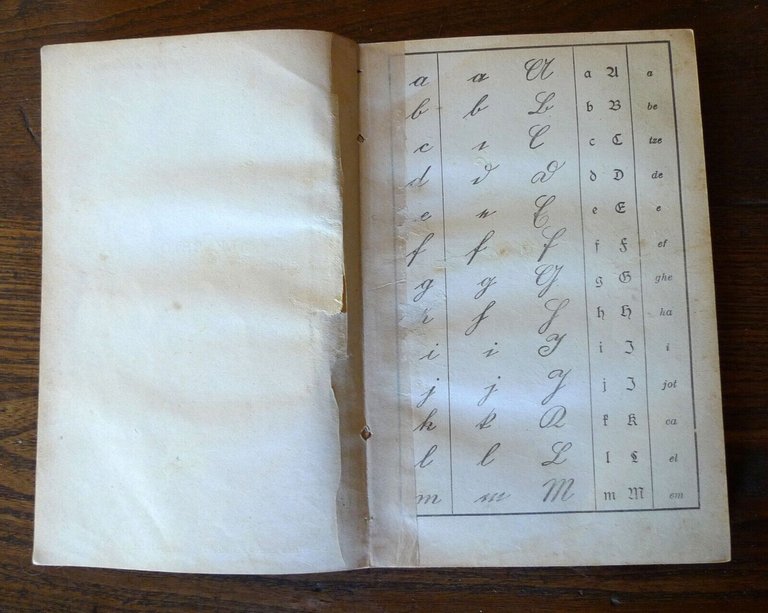 a a A a A a
b b B b B be
c c C c C tze
d d D d D de
e e E e E e
f f F f F ef
g g G g G ghe
h h H h H ha
i i I i I i
j j J j J jot
k k K k K ca
l l L l L el
m m M m M em